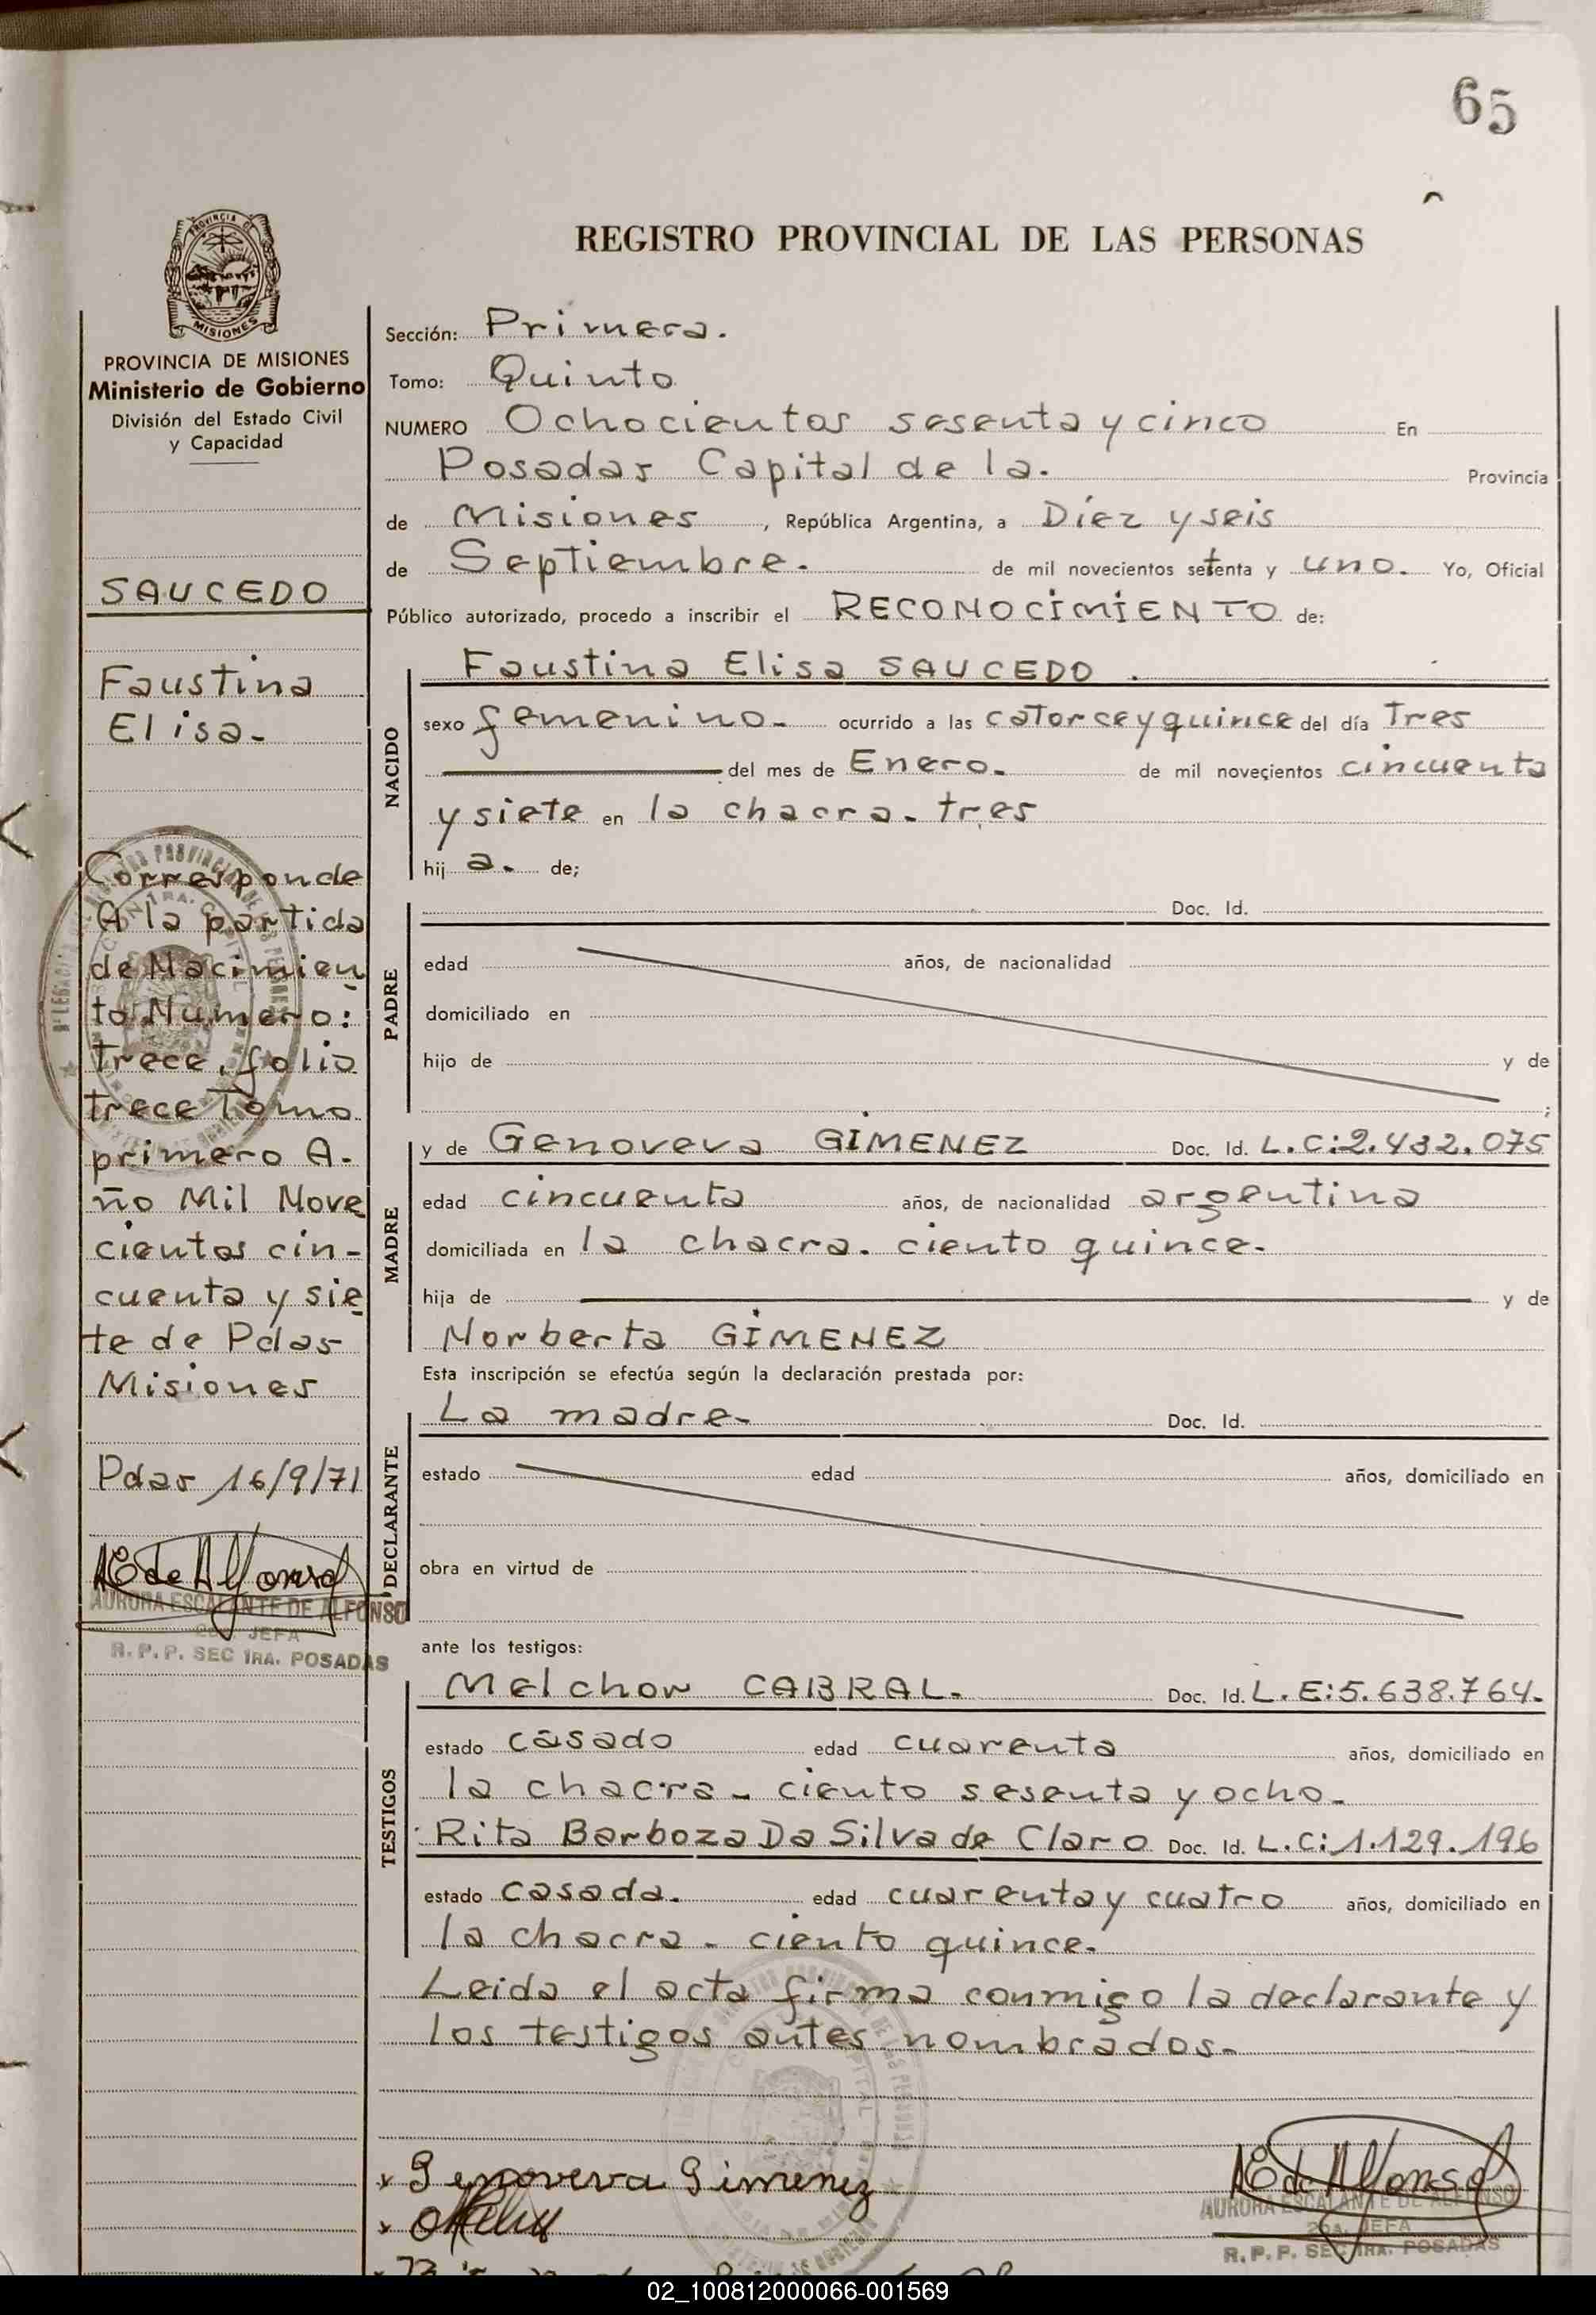 65
REGISTRO PROVINCIAL DE LAS PERSONAS
PROVINCIA DE
MISIONES
PROVINCIA DE MISIONES
Ministerio de Gobierno
División del Estado Civil
y Capacidad
SAUCEDO
Faustina
Elisa-
Corresponde
A la partida
de Nacimien
to Numero:
trece, folio
trece Tomo
primero A-
ño Mil Nove
cientos cin-
cuenta y sie
te de Pdas
Misiones
Pdas 16/9/71
AE de Alfonso
AURORA ESCALANTE DE ALFONSO
2da. JEFA
R. P. P. SEC 1RA. POSADAS
Sección: Primera.
Tomo: Quinto
NUMERO Ochocientos sesenta y cinco En
Posadas Capital de la. Provincia
de Misiones, República Argentina, a Díez y seis
de Septiembre. de mil novecientos setenta y uno. Yo, Oficial
Público autorizado, procedo a inscribir el RECONOCIMIENTO de:
NACIDO
Faustina Elisa SAUCEDO.
sexo femenino- ocurrido a las catorce y quince del día Tres
del mes de Enero. de mil novecientos cincuenta
y siete en la chacra. tres
hij a. de;
PADRE
Doc. Id.
edad años, de nacionalidad
domiciliado en
hijo de y de
;
MADRE
y de Genoveva GIMENEZ Doc. Id. L.C:2.432.075
edad cincuenta años, de nacionalidad argentina
domiciliada en la chacra. ciento quince-
hija de y de
Norberta GIMENEZ
Esta inscripción se efectúa según la declaración prestada por:
DECLARANTE
La madre- Doc. Id.
estado edad años, domiciliado en
obra en virtud de
ante los testigos:
TESTIGOS
Melchor CABRAL. Doc. Id. L.E:5.638.764.
estado casado edad cuarenta años, domiciliado en
la chacra - ciento sesenta y ocho-
Rita Barboza Da Silva de Claro Doc. Id. L.C:1.129.196
estado casada. edad cuarenta y cuatro años, domiciliado en
la chacra - ciento quince.
Leida el acta firma conmigo la declarante y
los testigos antes nombrados.
Genoveva Gimenez
AE de Alfonso
AURORA ESCALANTE DE ALFONSO
2da. JEFA
R. P. P. SEC 1RA. POSADAS
02_100812000066-001569